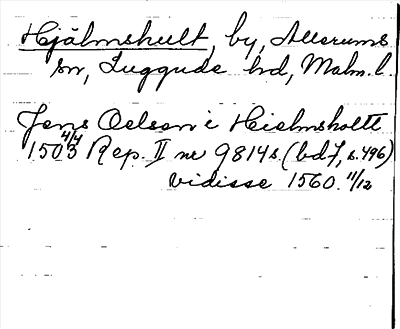 Hjälmshult, by, Allerums
sn, Luggude hd, Malm. l.
Jens Oelsson i Hielmsholtt
1503 4/4 Rep. II nr 9814 s. (bd 7, s. 496)
vidisse 1560 11/12